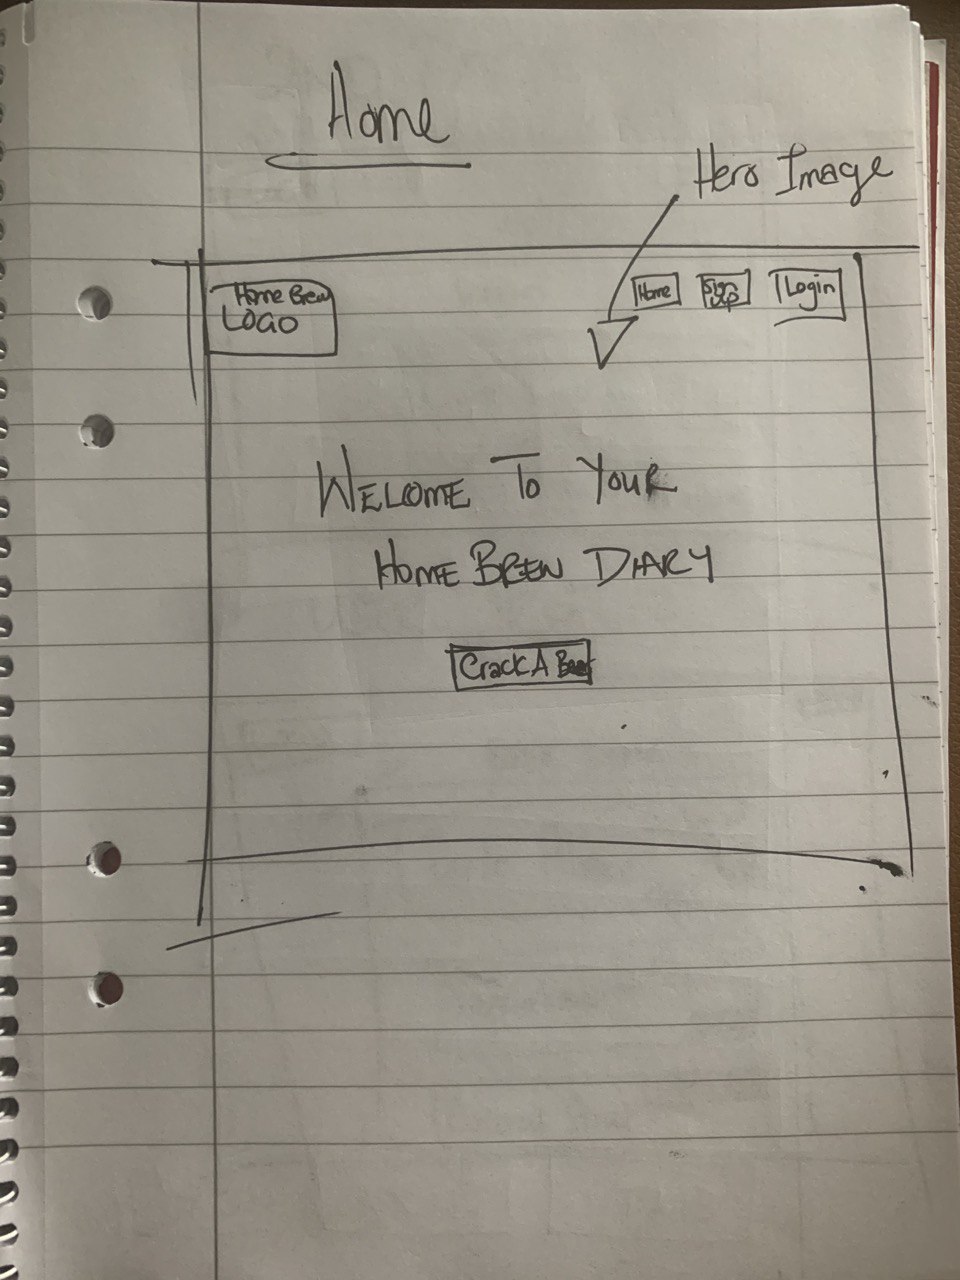 Home
Hero Image
Home Brew
LOGO
Home
Sign
Up
Login
WELCOME TO YOUR
HOME BREW DIARY
Crack A Beer